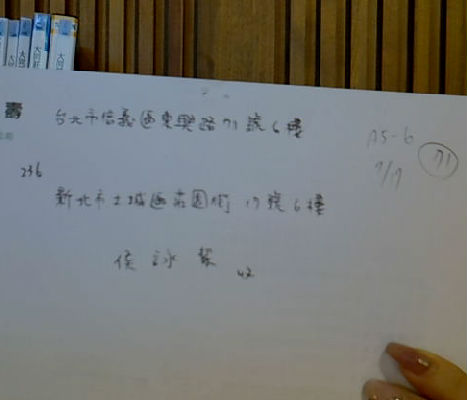 壽
台北市信義區東興路71號6樓
A5-6
7/7
71
236
新北市土城區莊園街17號6樓
侯詠